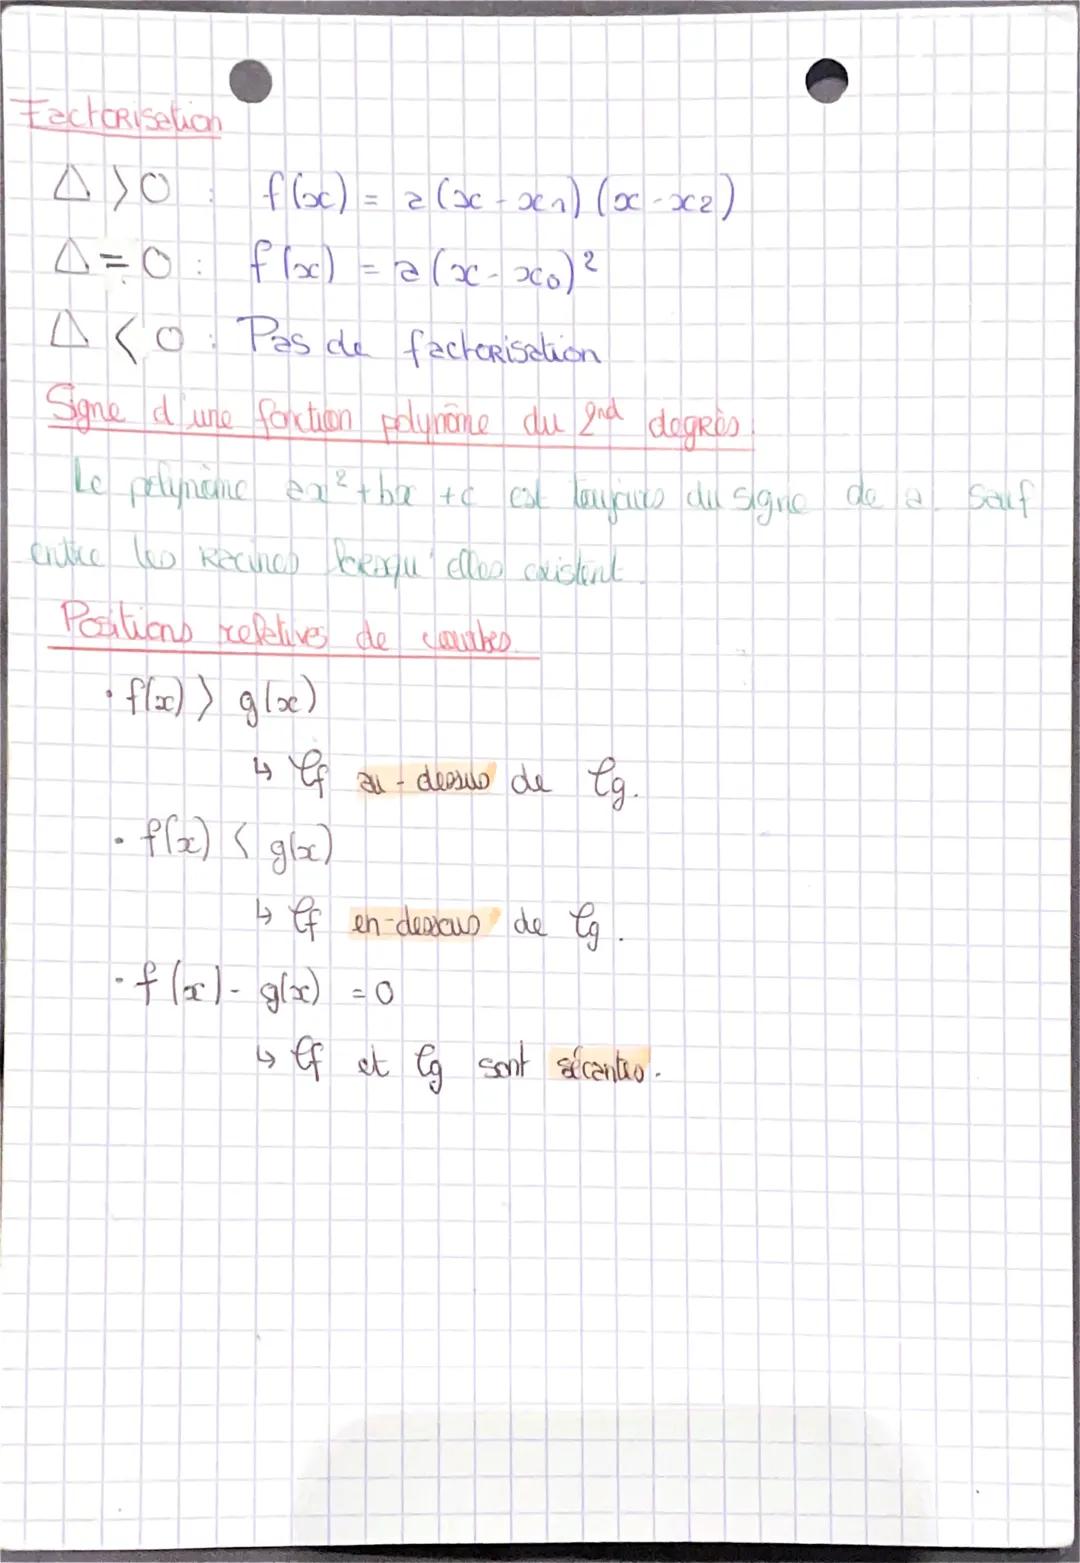 Factorisation
Δ > 0 : f(x) = a (x - x1) (x - x2)
Δ = 0 : f(x) = a (x - x0)²
Δ < 0 : Pas de factorisation
Signe d'une fonction polynôme du 2nd degrès.
Le polynôme ax² + bx + c est toujours du signe de a sauf
entre les racines lorsqu'elles existent.
Positions relatives de courbes.
• f(x) > g(x)
↳ Cf au-dessus de Cg.
• f(x) < g(x)
↳ Cf en-dessous de Cg.
• f(x) - g(x) = 0
↳ Cf et Cg sont sécantes.